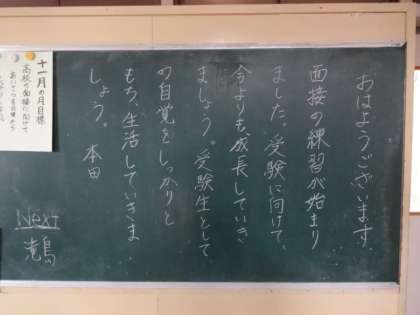 おはようございます。
面接の練習が始まり
ました。受験に向けて、
今よりも成長していき
ましょう。受験生として
の自覚をしっかりと
もち、生活していきま
しょう。 本田
十一月の月目標
高校の面接に向けて
Next